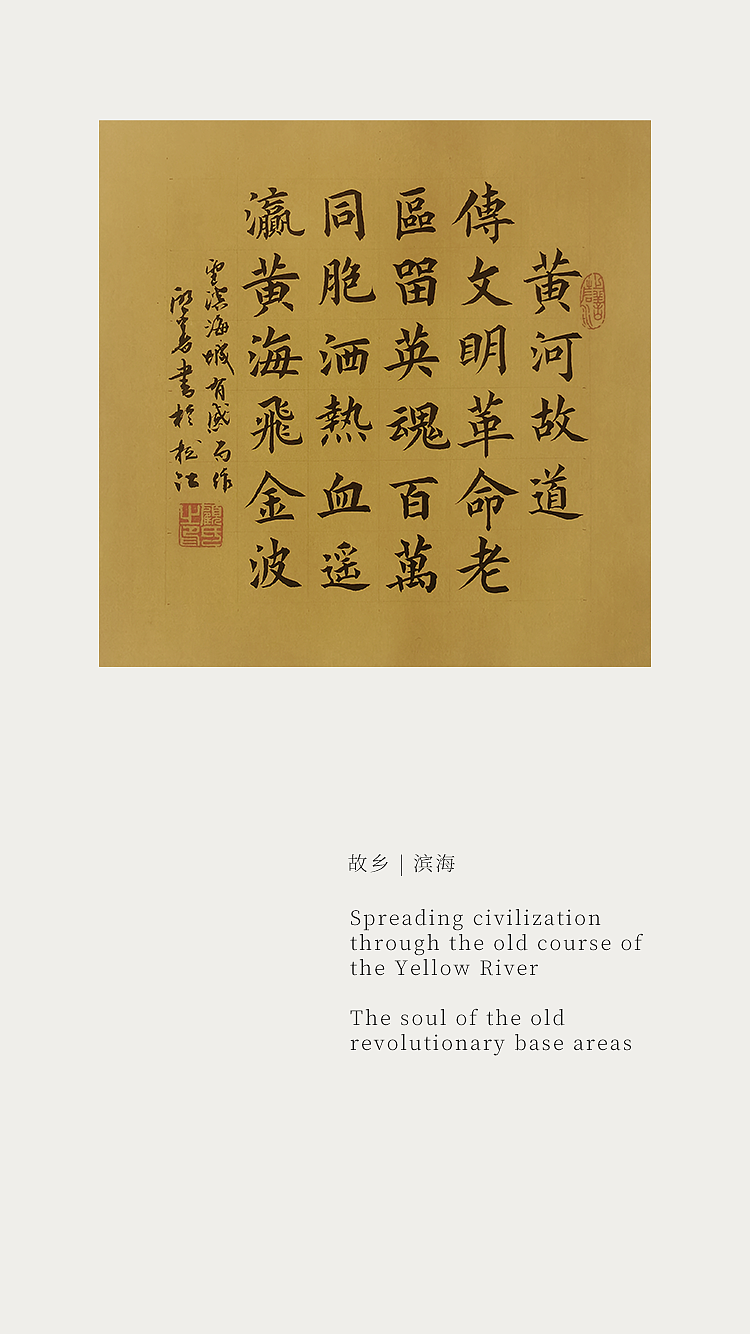 黄河故道
傳文明革命老
區留英魂百萬
同胞洒熱血遥
瀛黄海飛金波
濱海城有感而作
書於松江
顧氏之印
故乡 | 滨海
Spreading civilization
through the old course of
the Yellow River
The soul of the old
revolutionary base areas